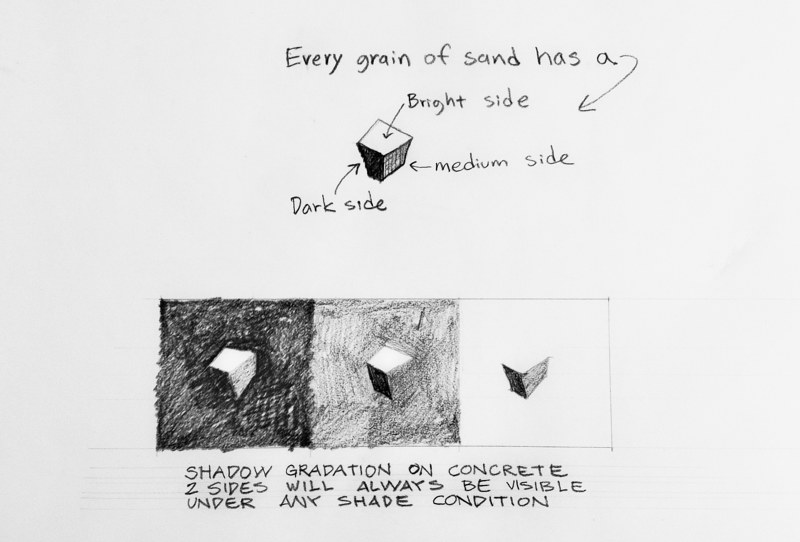 Every grain of sand has a
Bright side
medium side
Dark side
SHADOW GRADATION ON CONCRETE
2 SIDES WILL ALWAYS BE VISIBLE
UNDER ANY SHADE CONDITION